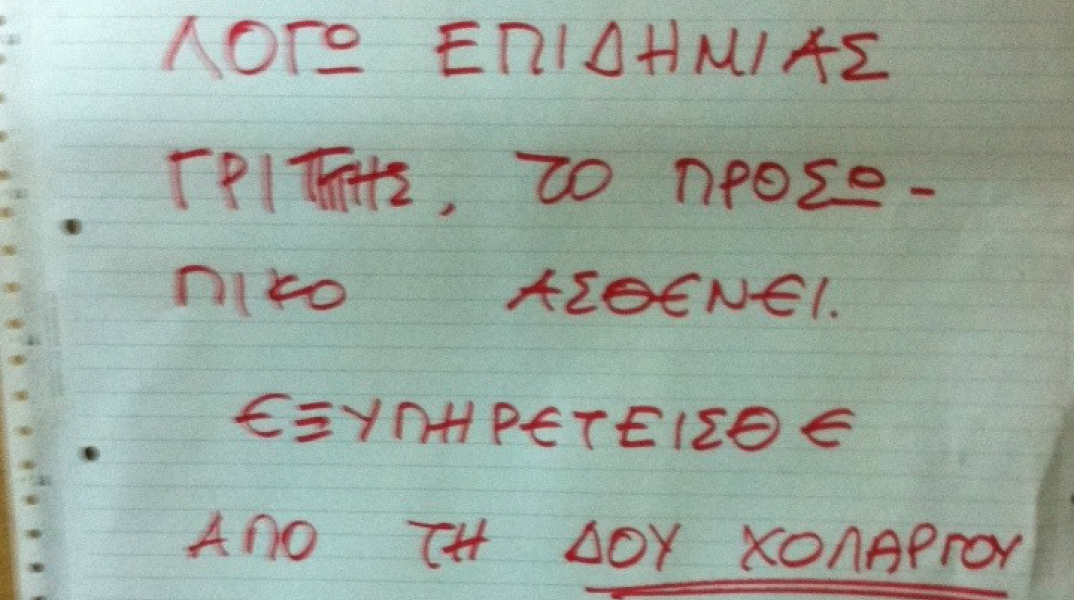 ΛΟΓΩ ΕΠΙΔΗΜΙΑΣ
ΓΡΙΠΠΗΣ, ΤΟ ΠΡΟΣΩ-
ΠΙΚΟ ΑΣΘΕΝΕΙ.
ΕΞΥΠΗΡΕΤΕΙΣΘΕ
ΑΠΟ ΤΗ ΔΟΥ ΧΟΛΑΡΓΟΥ